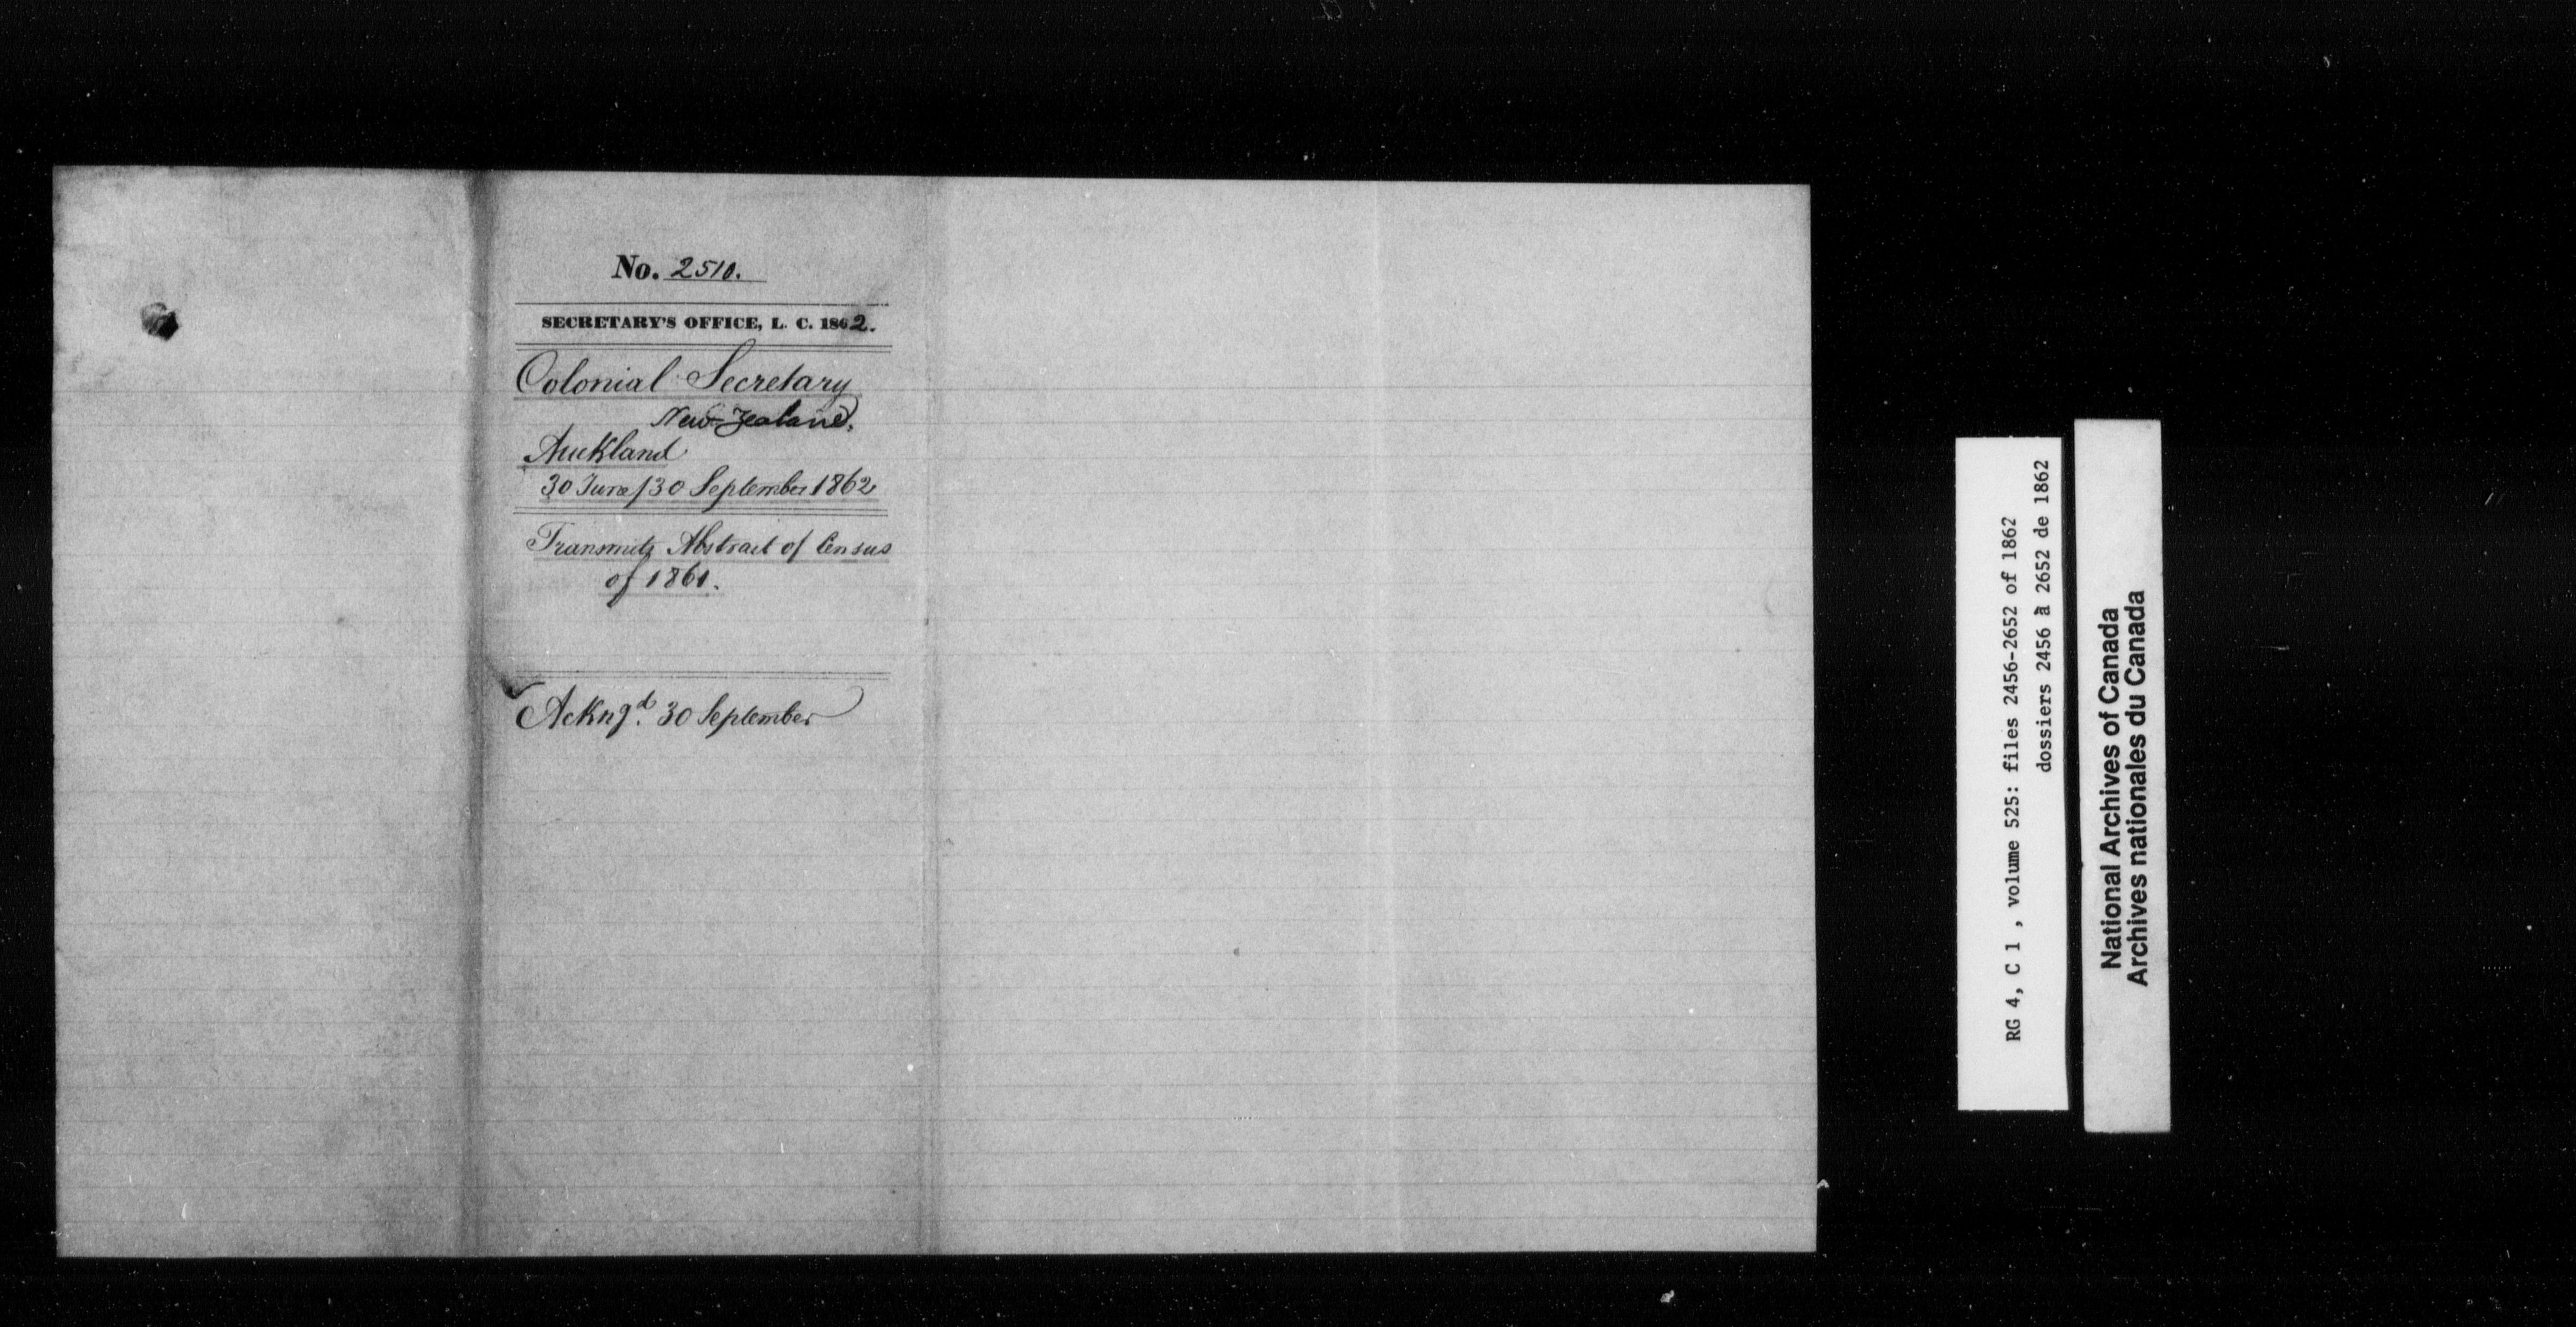 No. 2510.
SECRETARY'S OFFICE, L. C. 1862.
Colonial Secretary
New-Zealand.
Auckland
30 June/30 September 1862
Transmits Abstract of Census
of 1861.
Ackngd. 30 September
RG 4, C 1 , volume 525: files 2456-2652 of 1862
dossiers 2456 à 2652 de 1862
National Archives of Canada
Archives nationales du Canada